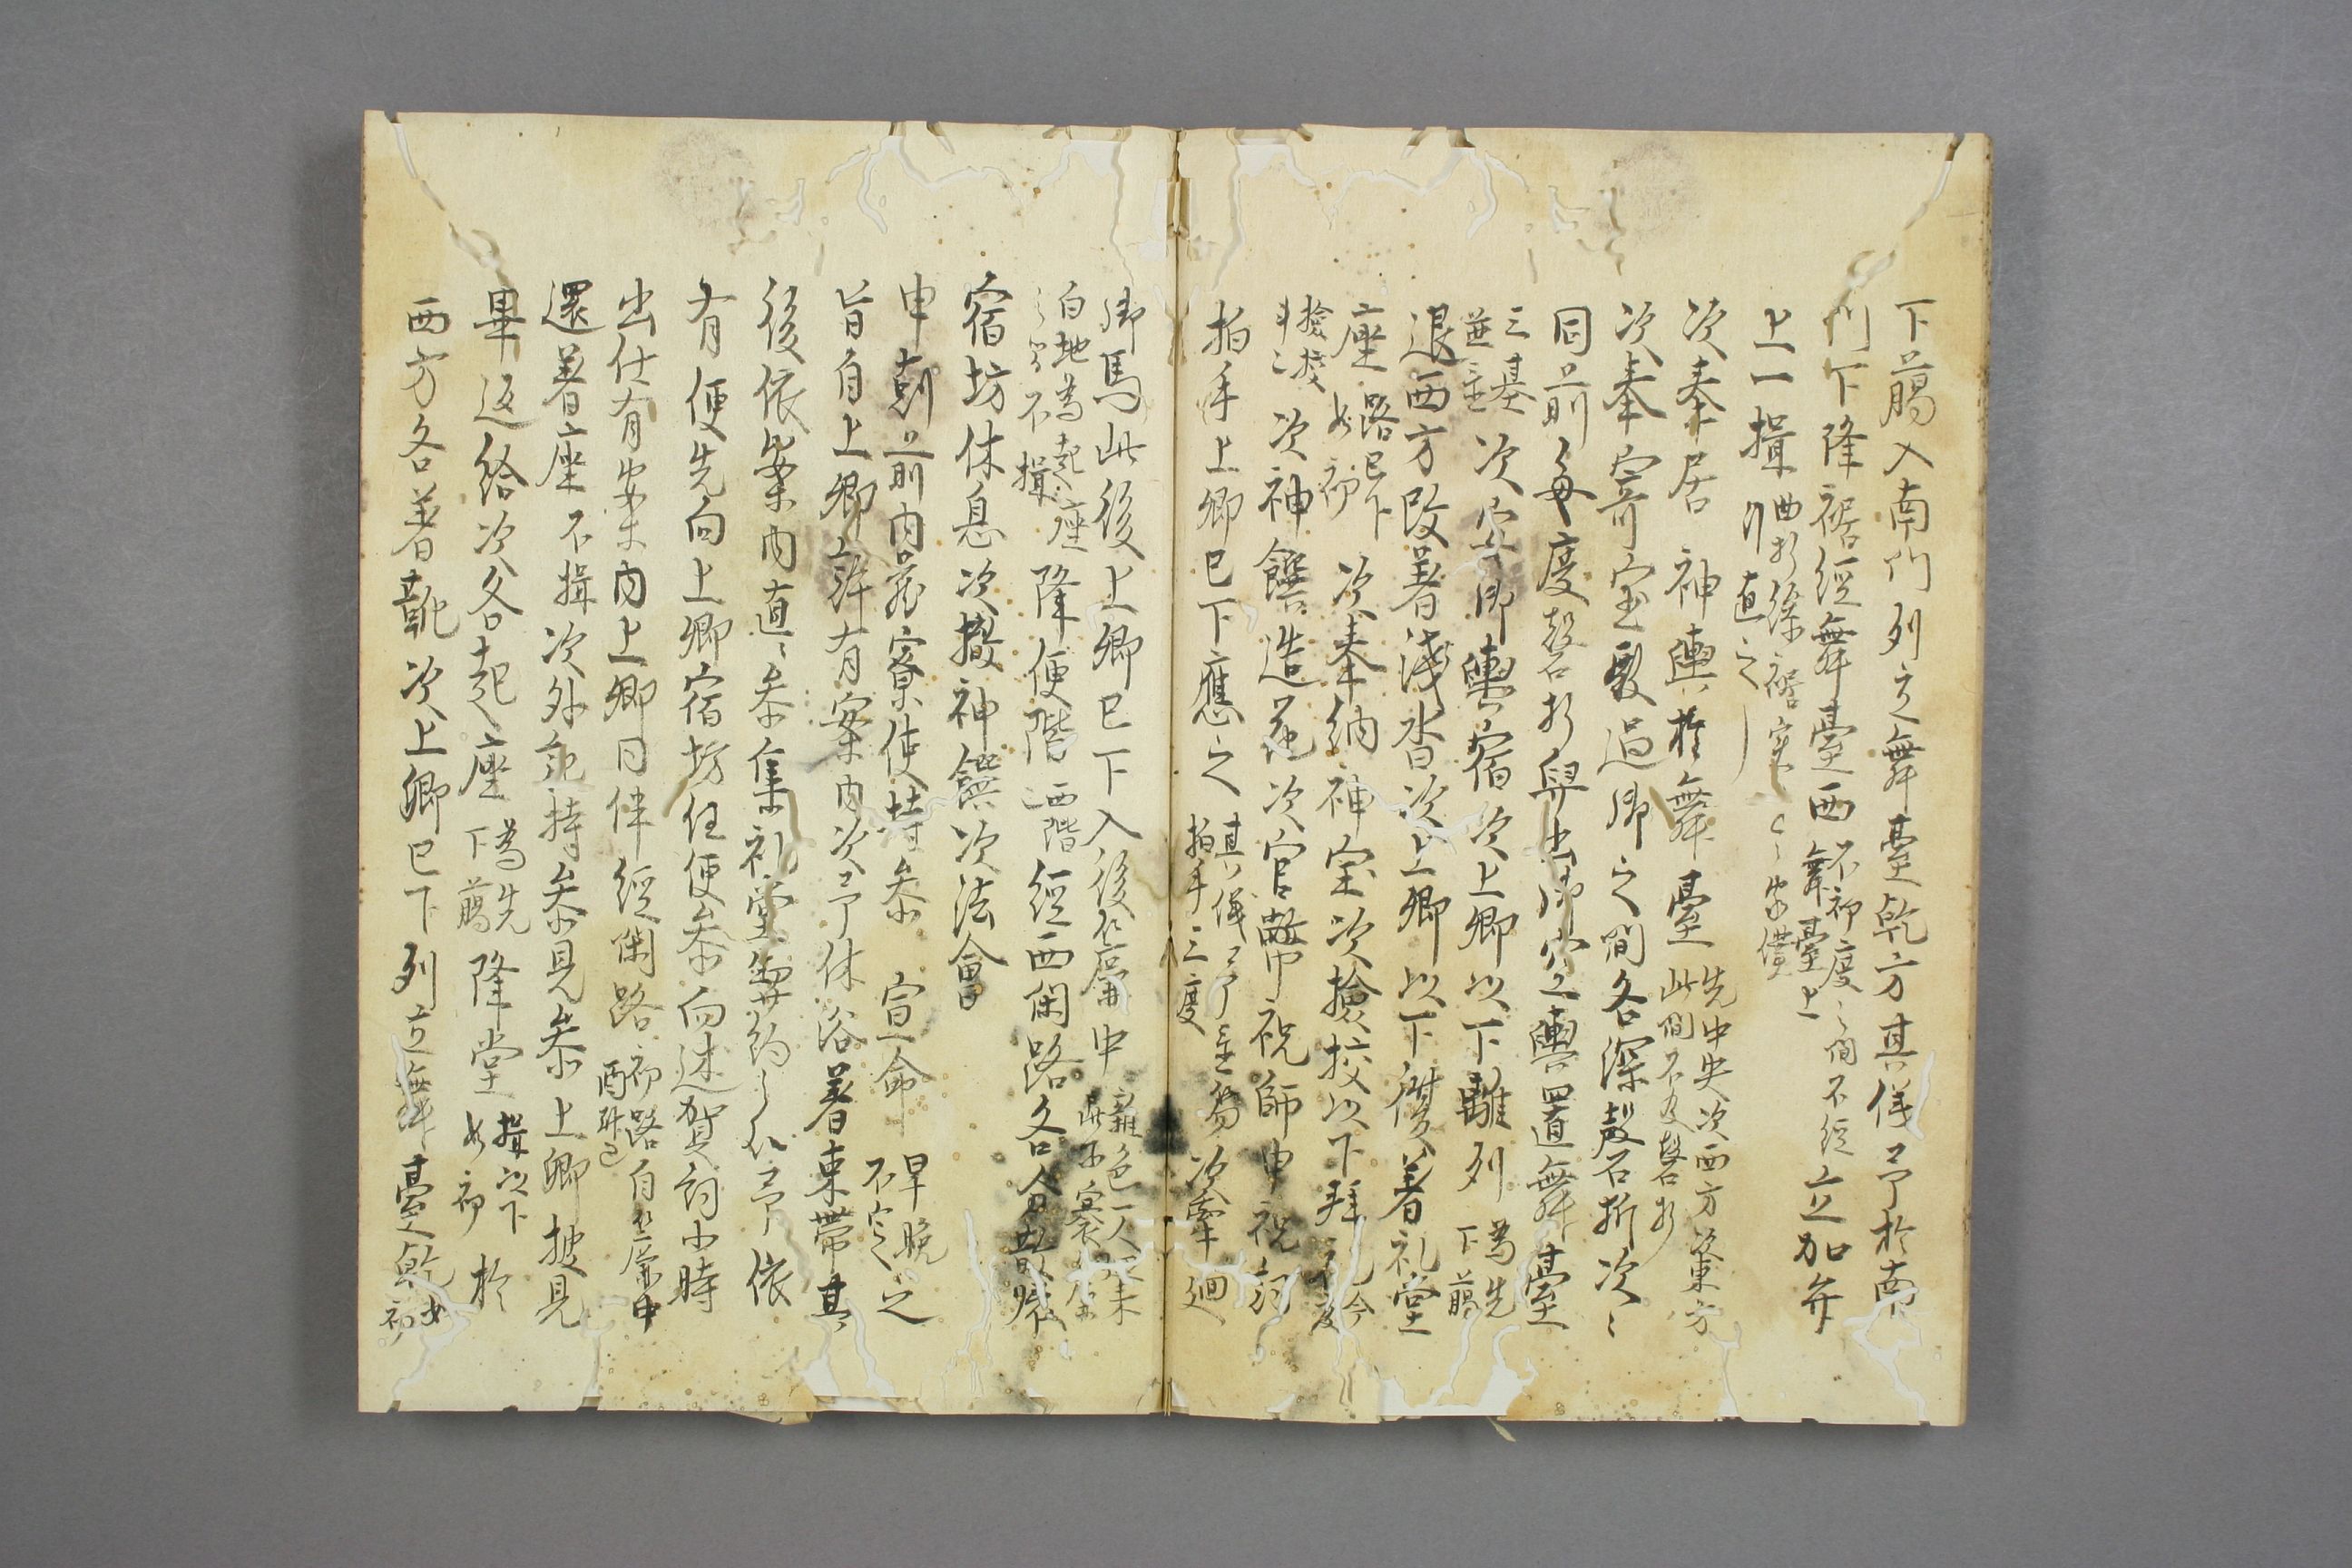 下﨟入南門列立舞臺乾方其儀予於南
門下降裾經舞臺西不初度之間不經舞臺上立加弁
上一揖
引直之
次奉居 神輿於舞臺先中央次西方次東方此間不及磬折
次奉寄宝殿過御之間各深磬折次々
同前每度磬折舁出御空輿置舞臺
三基並 次 御輿宿次上卿以下離列下﨟為先
退西方改著浅沓次上卿以下儧著礼堂
座路已下如初 次奉納 神宝次撿挍以下拜
撿挍 次神饌造花次官幣祝師申祝詞
拍手上卿已下應之其儀予 拍手三度 次牽廻
御馬此後上卿已下入後 中雜色一人
白地為起座 不揖 降便階西階經西閑路各分散
宿坊休息次撤神饌次法會
申刻前内蔵寮使持参 宣命早晩不定之
旨自上卿許有案内次予休浴著束帶其
後依案内直々参集礼堂 予依
有便先向上卿宿坊任便参向述賀詞小時
出仕有案内上卿同伴經閑路初路自 中
還著座不揖次外記持参見参上卿披見
畢返給次各起座下﨟為先降堂揖以下如初於
西方各著靴次上卿已下列立舞臺乾如初